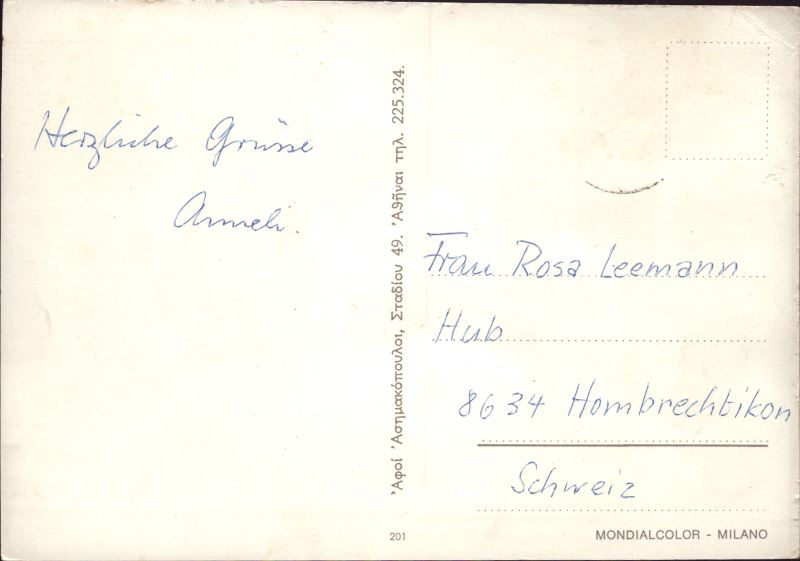 Herzliche Grüsse
Anneli.
'Αφοί 'Ασημακόπουλοι, Σταδίου 49. 'Αθῆναι τηλ. 225.324.
Frau Rosa Leemann
Hub
8634 Hombrechtikon
Schweiz
201
MONDIALCOLOR - MILANO